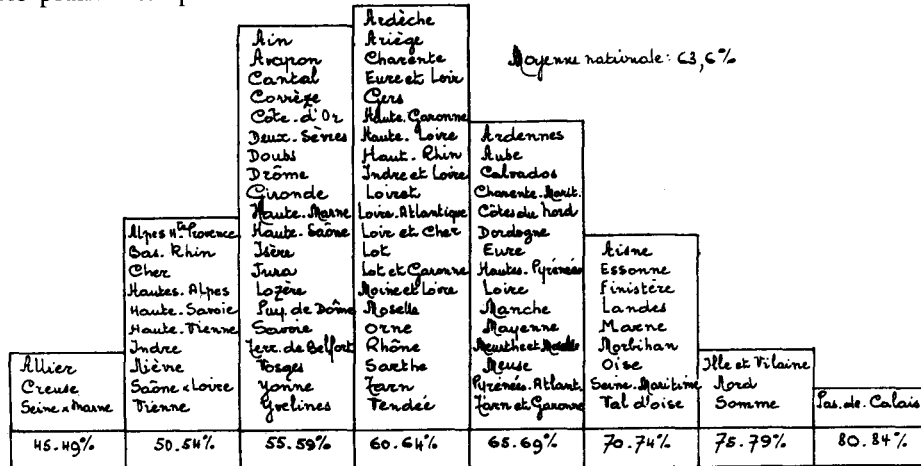 Moyenne nationale: 63,6%
Allier
Creuse
Seine & Marne
45.49%
Alpes Hte Provence
Bas. Rhin
Cher
Hautes. Alpes
Haute. Savoie
Haute. Vienne
Indre
Nièvre
Saône & Loire
Vienne
50.54%
Ain
Aveyron
Cantal
Corrèze
Côte. d'Or
Deux. Sèvres
Doubs
Drôme
Gironde
Haute. Marne
Haute. Saône
Isère
Jura
Lozère
Puy. de Dôme
Savoie
Terr. de Belfort
Vosges
Yonne
Yvelines
55.59%
Ardèche
Ariège
Charente
Eure et Loir
Gers
Haute. Garonne
Haute. Loire
Haut. Rhin
Indre et Loire
Loiret
Loire. Atlantique
Loir et Cher
Lot
Lot et Garonne
Maine et Loire
Moselle
Orne
Rhône
Sarthe
Tarn
Vendée
60.64%
Ardennes
Aube
Calvados
Charente. Marit.
Côtes du Nord
Dordogne
Eure
Hautes. Pyrénées
Loire
Manche
Mayenne
Meurthe et Moselle
Meuse
Pyrénées. Atlant.
Tarn et Garonne
65.69%
Aisne
Essonne
Finistère
Landes
Marne
Morbihan
Oise
Seine. Maritime
Val d'oise
70.74%
Ille et Vilaine
Nord
Somme
75.79%
Pas. de. Calais
80.84%